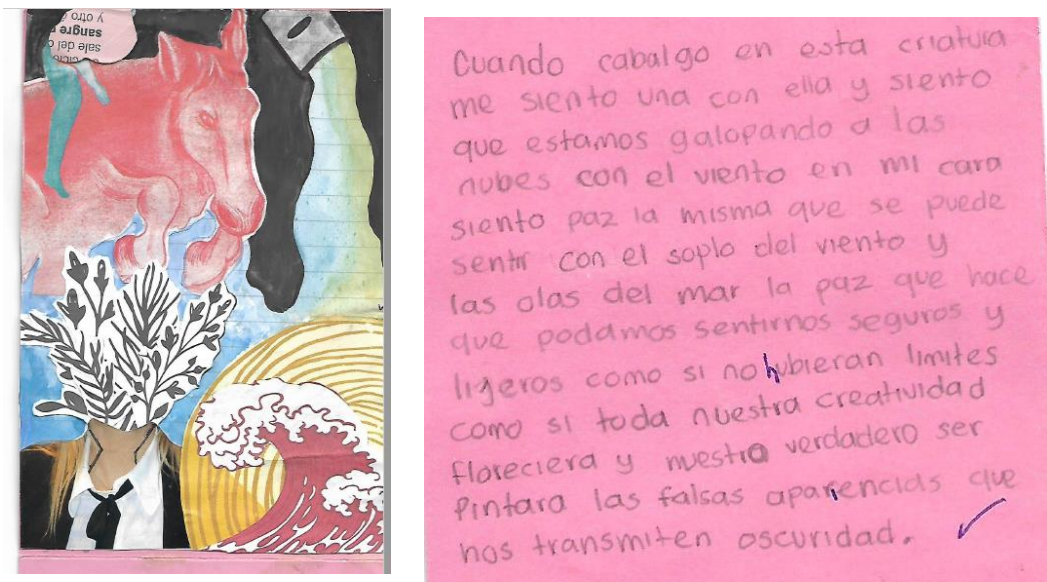 sale del
sangre
y otro
Cuando cabalgo en esta criatura
me siento una con ella y siento
que estamos galopando a las
nubes con el viento en mi cara
siento paz la misma que se puede
sentir con el soplo del viento y
las olas del mar la paz que hace
que podamos sentirnos seguros y
lijeros como si no hubieran limites
como si toda nuestra creatividad
floreciera y nuestro verdadero ser
Pintara las falsas apariencias que
nos transmiten oscuridad.